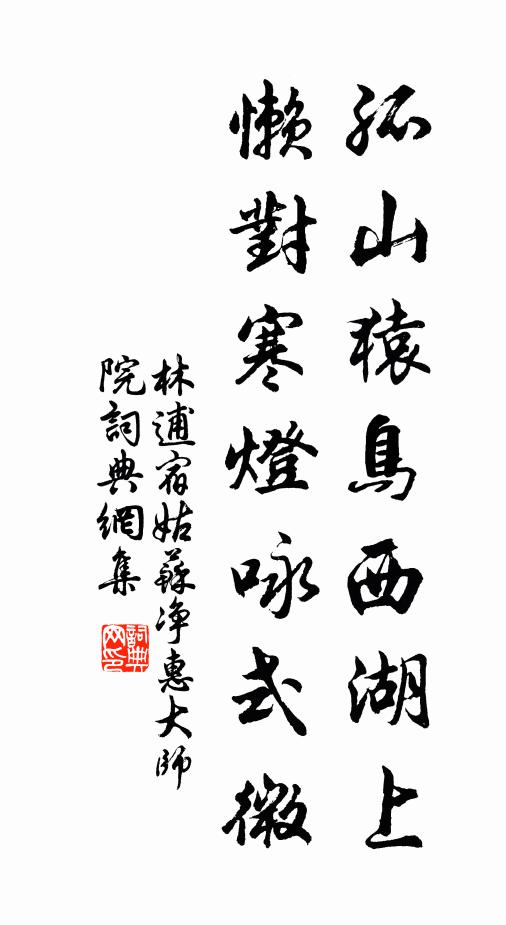 孤山猿鳥西湖上
懶對寒燈咏式微
林逋宿姑蘇净惠大師
院詞典網集
詞典網印